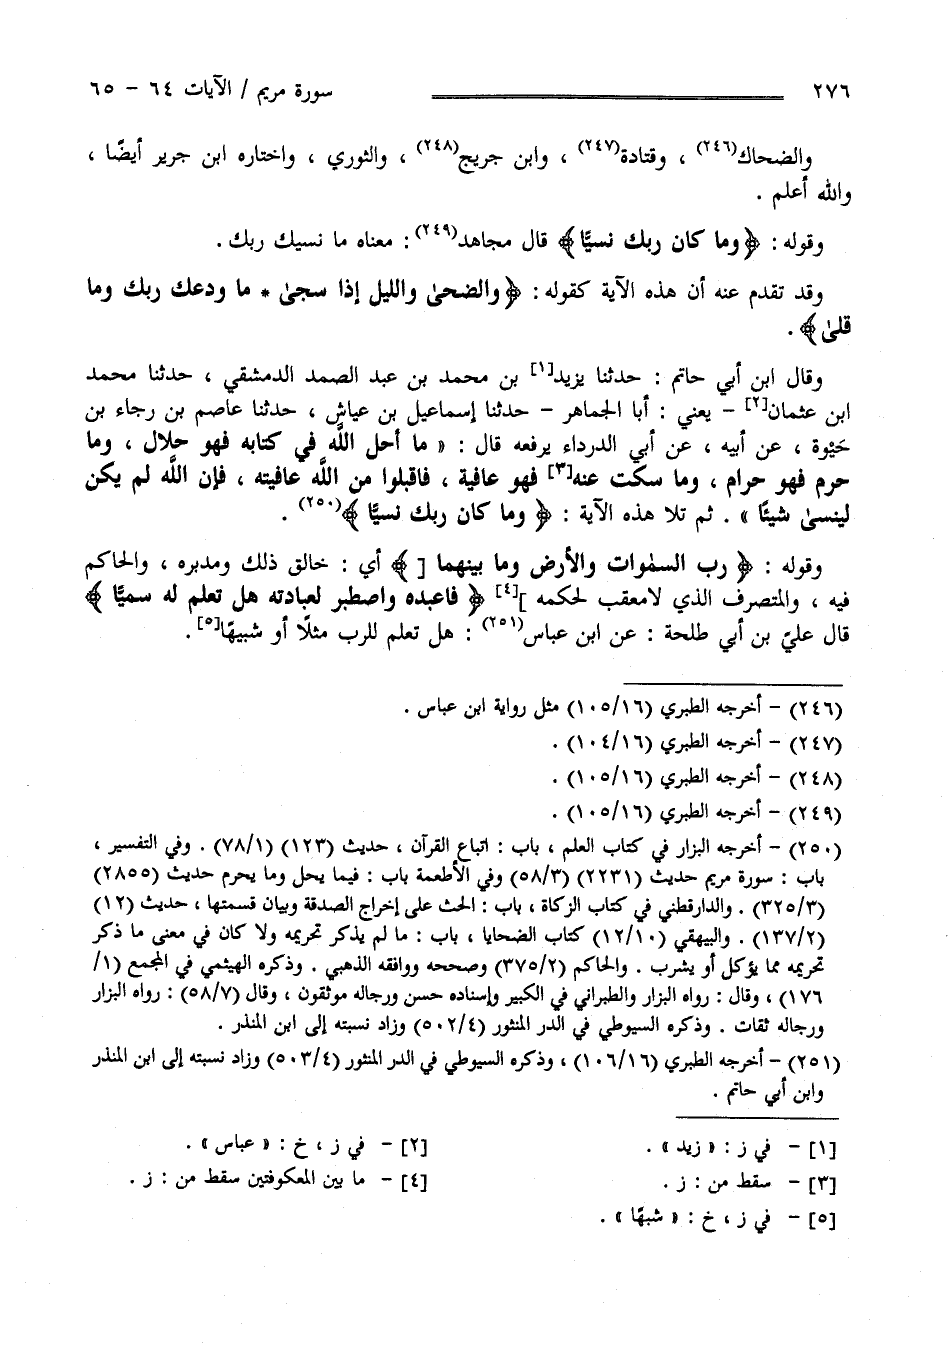 ٢٧٦ سورة مريم / الآيات ٦٤ - ٦٥
والضحاك(٢٤٦) ، وقتادة(٢٤٧) ، وابن جريج(٢٤٨) ، والثوري ، واختاره ابن جرير أيضًا ،
والله أعلم .
وقوله : ﴿وما كان ربك نسيًّا﴾ قال مجاهد(٢٤٩) : معناه ما نسيك ربك .
وقد تقدم عنه أن هذه الآية كقوله : ﴿والضحىٰ والليل إذا سجىٰ * ما ودعك ربك وما
قلىٰ﴾ .
وقال ابن أبي حاتم : حدثنا يزيد[١] بن محمد بن عبد الصمد الدمشقي ، حدثنا محمد
ابن عثمان[٢] - يعني : أبا الجماهر - حدثنا إسماعيل بن عياش ، حدثنا عاصم بن رجاء بن
حَيْوة ، عن أبيه ، عن أبي الدرداء يرفعه قال : « ما أحل اللَّه في كتابه فهو حلال ، وما
حرم فهو حرام ، وما سكت عنه[٣] فهو عافية ، فاقبلوا من اللَّه عافيته ، فإن اللَّه لم يكن
لينسىٰ شيئًا » . ثم تلا هذه الآية : ﴿ وما كان ربك نسيًّا ﴾(٢٥٠) .
وقوله : ﴿ رب السمٰوات والأرض وما بينهما [ ﴾ أي : خالق ذلك ومدبره ، والحاكم
فيه ، والمتصرف الذي لامعقب لحكمه ][٤] ﴿ فاعبده واصطبر لعبادته هل تعلم له سميًّا ﴾
قال عليّ بن أبي طلحة : عن ابن عباس(٢٥١) : هل تعلم للرب مثلًا أو شبيهًا[٥] .
(٢٤٦) - أخرجه الطبري (١٠٥/١٦) مثل رواية ابن عباس .
(٢٤٧) - أخرجه الطبري (١٠٤/١٦) .
(٢٤٨) - أخرجه الطبري (١٠٥/١٦) .
(٢٤٩) - أخرجه الطبري (١٠٥/١٦) .
(٢٥٠) - أخرجه البزار في كتاب العلم ، باب : اتباع القرآن ، حديث (١٢٣) (٧٨/١) . وفي التفسير ،
باب : سورة مريم حديث (٢٢٣١) (٥٨/٣) وفي الأطعمة باب : فيما يحل وما يحرم حديث (٢٨٥٥)
(٣٢٥/٣) . والدارقطني في كتاب الزكاة ، باب : الحث على إخراج الصدقة وبيان قسمتها ، حديث (١٢)
(١٣٧/٢) . والبيهقي (١٢/١٠) كتاب الضحايا ، باب : ما لم يذكر تحريمه ولا كان في معنى ما ذكر
تحريمه مما يؤكل أو يشرب . والحاكم (٣٧٥/٢) وصححه ووافقه الذهبي . وذكره الهيثمي في المجمع (١/
١٧٦) ، وقال : رواه البزار والطبراني في الكبير وإسناده حسن ورجاله موثقون ، وقال (٥٨/٧) : رواه البزار
ورجاله ثقات . وذكره السيوطي في الدر المنثور (٥٠٢/٤) وزاد نسبته إلى ابن المنذر .
(٢٥١) - أخرجه الطبري (١٠٦/١٦) ، وذكره السيوطي في الدر المنثور (٥٠٣/٤) وزاد نسبته إلى ابن المنذر
وابن أبي حاتم .
[١] - في ز : « زيد » . [٢] - في ز ، خ : « عباس » .
[٣] - سقط من : ز . [٤] - ما بين المعكوفتين سقط من : ز .
[٥] - في ز ، خ : « شبهًا » .